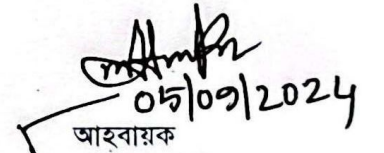 05/09/2024
আহবায়ক